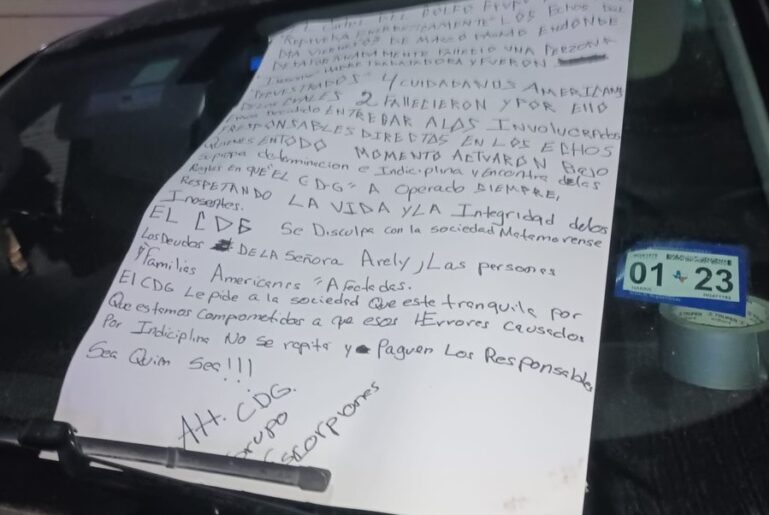 DEL
REPRUEBA ENERGICAMENTE LOS Echos del
DIA VIERNES 3 DE MARZO ENDONDE
DESAFORTUNADAMENTE FALLECIO UNA PERZONA
TRABAJADORA Y FUERON
4 CUIDADANOS AMERICANOS
DE LOS CUALES 2 FALLECIERON Y POR ELLO
ENTREGAR A LOS INVOLUCRADOS
RESPONSABLES DIRECTAS EN LOS ECHOS
QUIENES EN TODO MOMENTO ACTUARÓN Bajo
su propia determinacion e Indiciplina y encontra de las
Reglas en que "EL CDG" A Operado SIEMPRE,
RESPETANDO LA VIDA y LA Integridad de los
Inosentes.
EL CDG Se Disculpa con la sociedad Matamorense
Los Deudos DE LA Señora Arely, Las personas
y Familias Americanas "Afectadas.
El CDG Le pide a la sociedad Que este tranquila por
Que estamos comprometidos a que esos Errores causados
Por Indiciplina No se repita y Paguen Los Responsables
Sea Quim Sea!!!
Att. CDG.
Grupo
Escorpiones
01 23